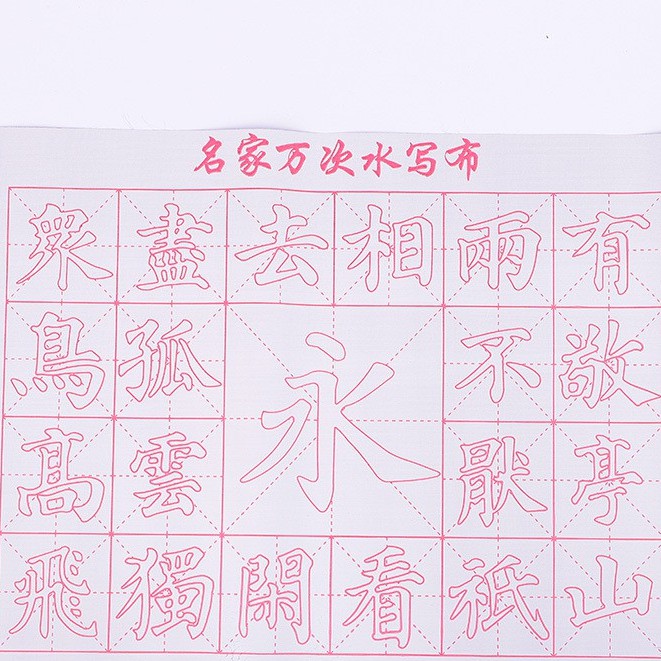 名家万次水写布
衆鳥髙飛
盡孤雲獨
去閑
相看
兩不猒祇
有敬亭山
永